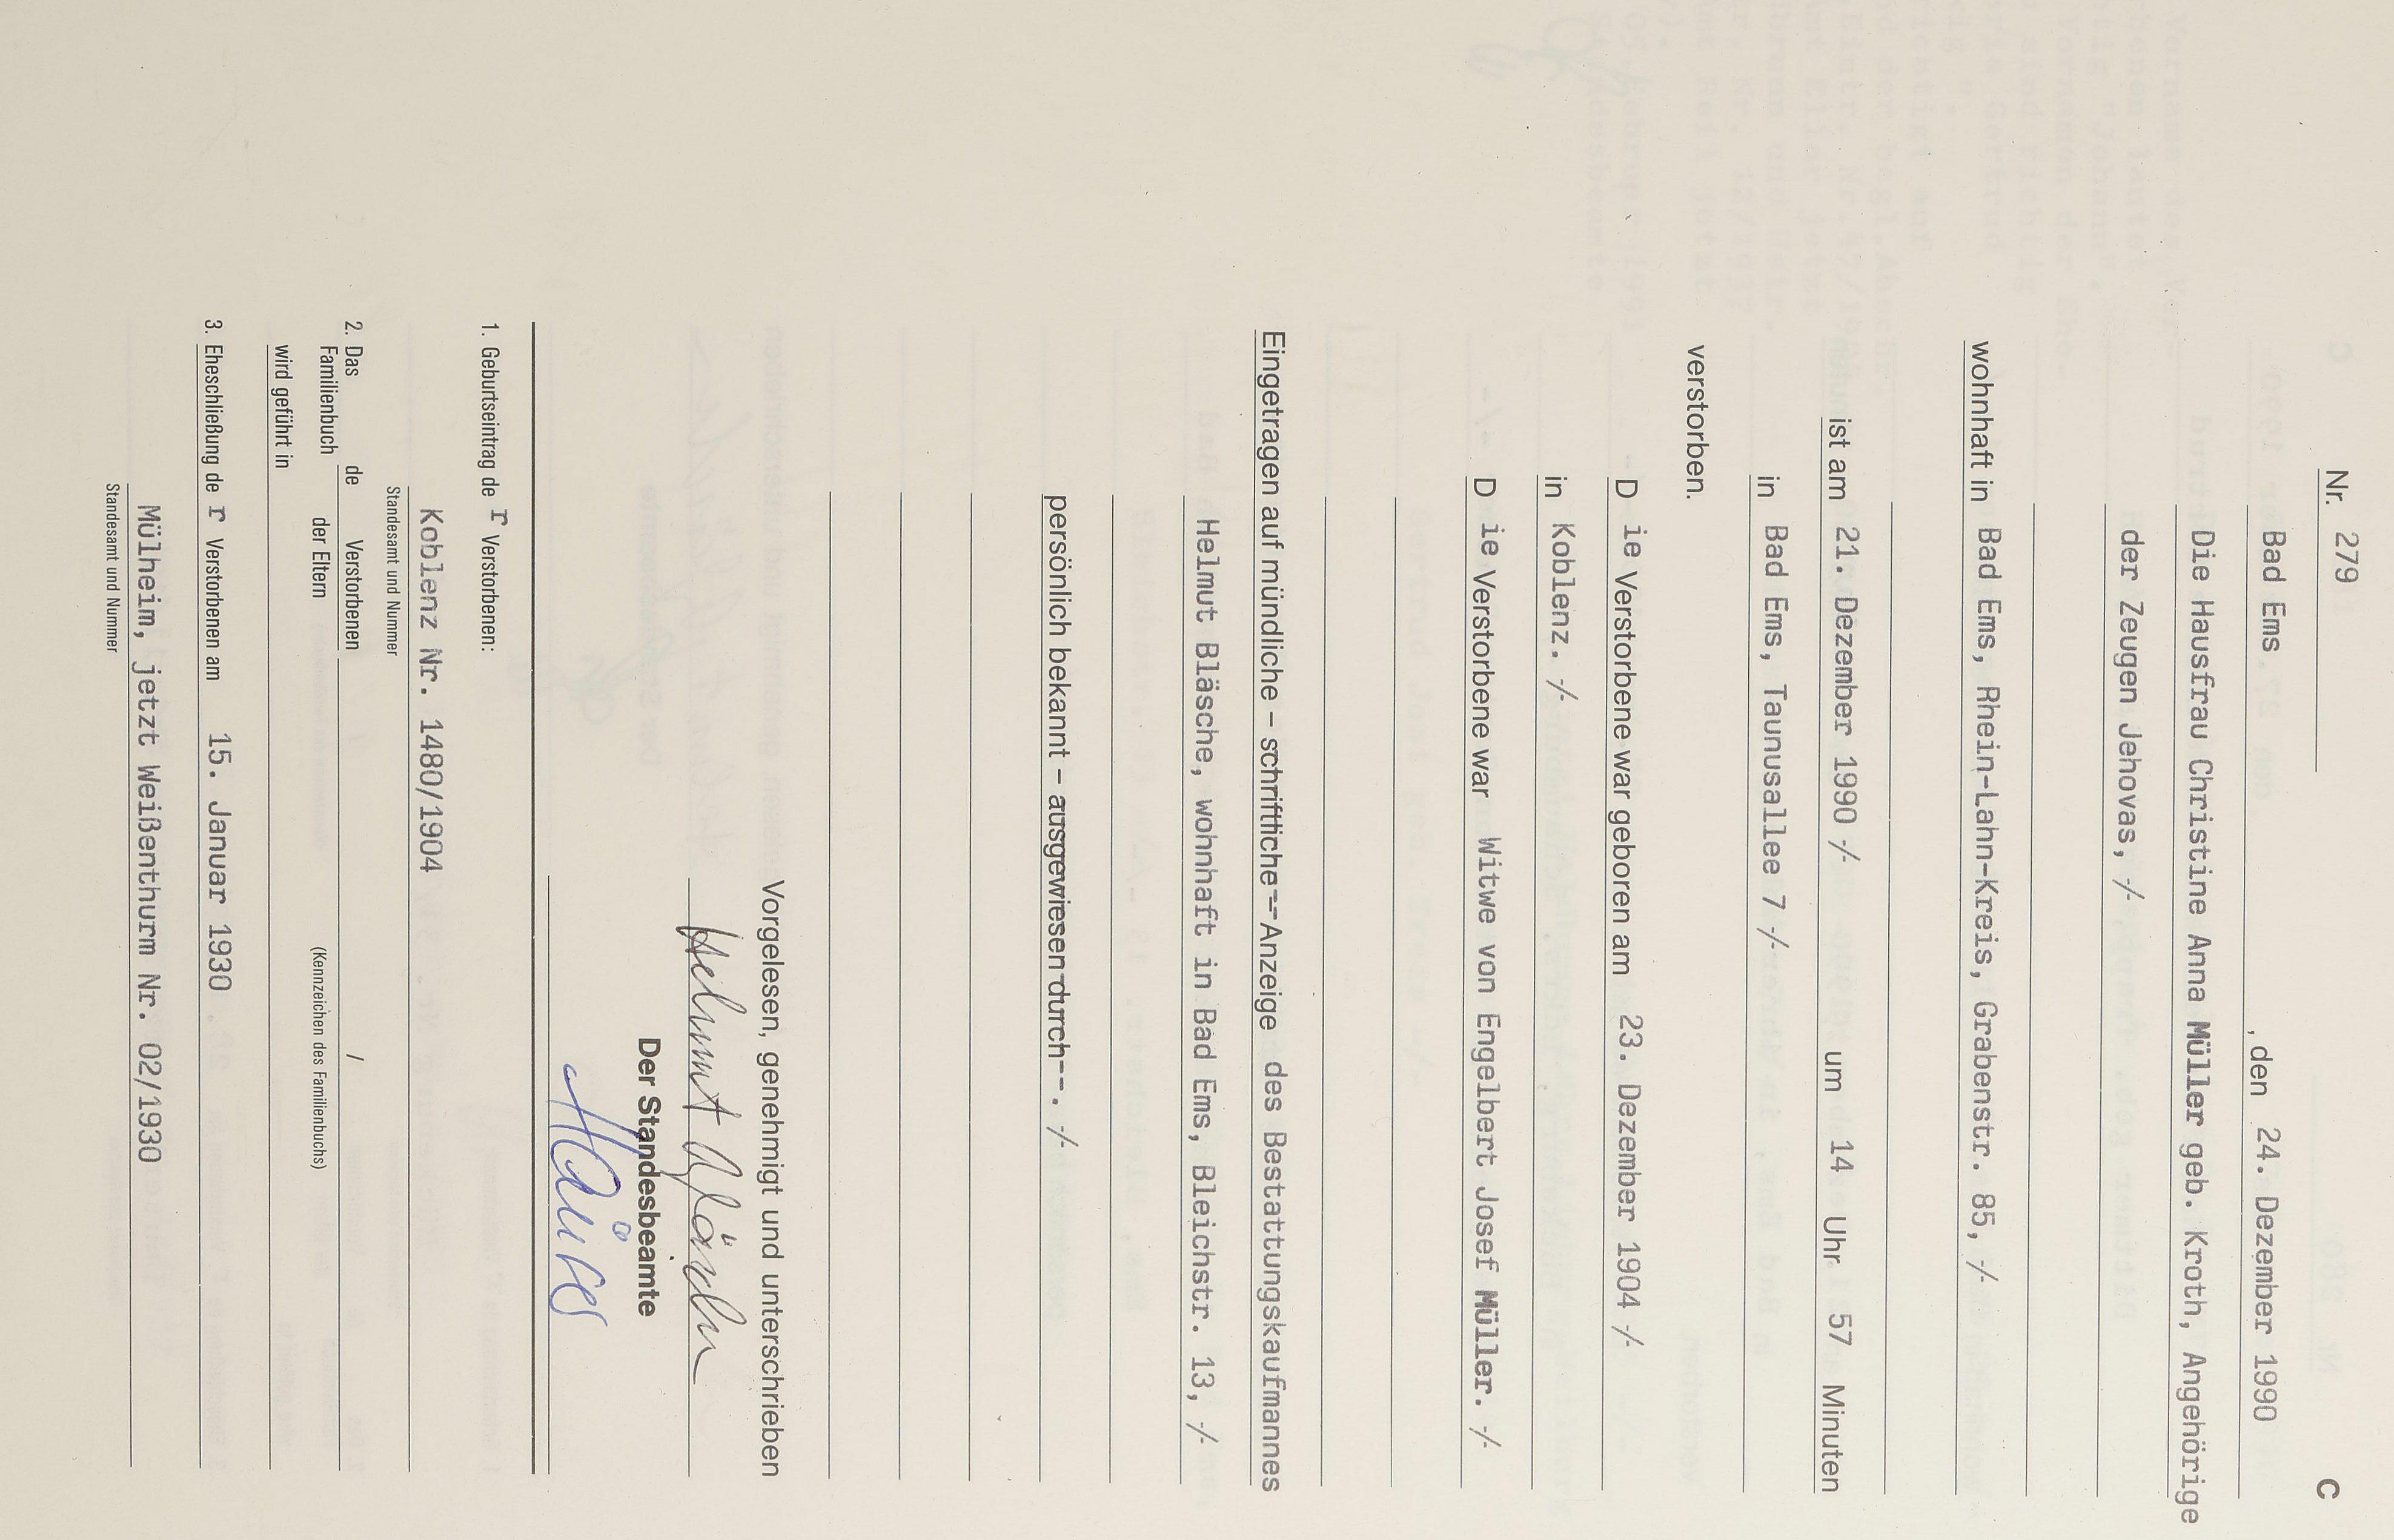 C
Nr. 279
Bad Ems , den 24. Dezember 1990
Die Hausfrau Christine Anna Müller geb. Kroth, Angehörige
der Zeugen Jehovas, -/-
wohnhaft in Bad Ems, Rhein-Lahn-Kreis, Grabenstr. 85, -/-
ist am 21. Dezember 1990 -/- um 14 Uhr 57 Minuten
in Bad Ems, Taunusallee 7 -/-
verstorben.
D ie Verstorbene war geboren am 23. Dezember 1904 -/-
in Koblenz. -/-
D ie Verstorbene war Witwe von Engelbert Josef Müller. -/-
Eingetragen auf mündliche – schriftliche – Anzeige des Bestattungskaufmannes
Helmut Bläsche, wohnhaft in Bad Ems, Bleichstr. 13, -/-
persönlich bekannt – ausgewiesen durch--. -/-
Vorgelesen, genehmigt und unterschrieben
Helmut Bläsche
Der Standesbeamte
1. Geburtseintrag de r Verstorbenen:
Koblenz Nr. 1480/1904
Standesamt und Nummer
2. Das Familienbuch de Verstorbenen /
der Eltern (Kennzeichen des Familienbuchs)
wird geführt in
3. Eheschließung de r Verstorbenen am 15. Januar 1930
Mülheim, jetzt Weißenthurm Nr. 02/1930
Standesamt und Nummer